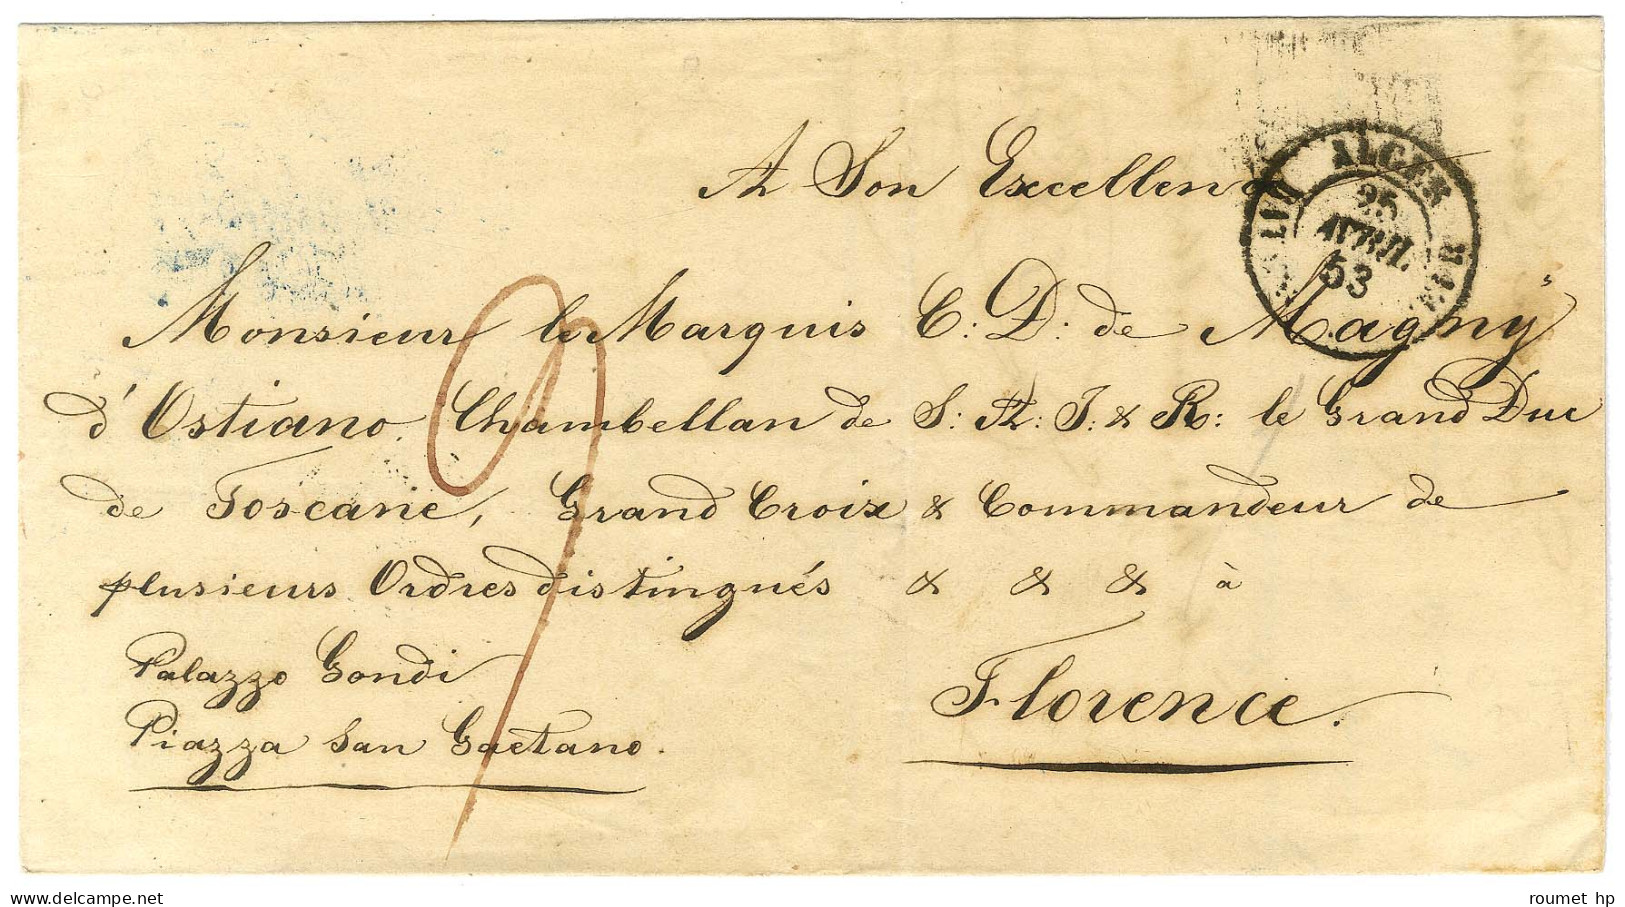 A Son Excellence
ALGER
25
AVRIL
53
Monsieur le Marquis C: D: de Magnÿ
d'Ostiano, Chambellan de S: A: I: & R: le Grand Duc
de Toscane, Grand Croix & Commandeur de
plusieurs Ordres distingués & & & à
Palazzo Gondi
Piazza San Gaetano.
Florence.
roumet hp